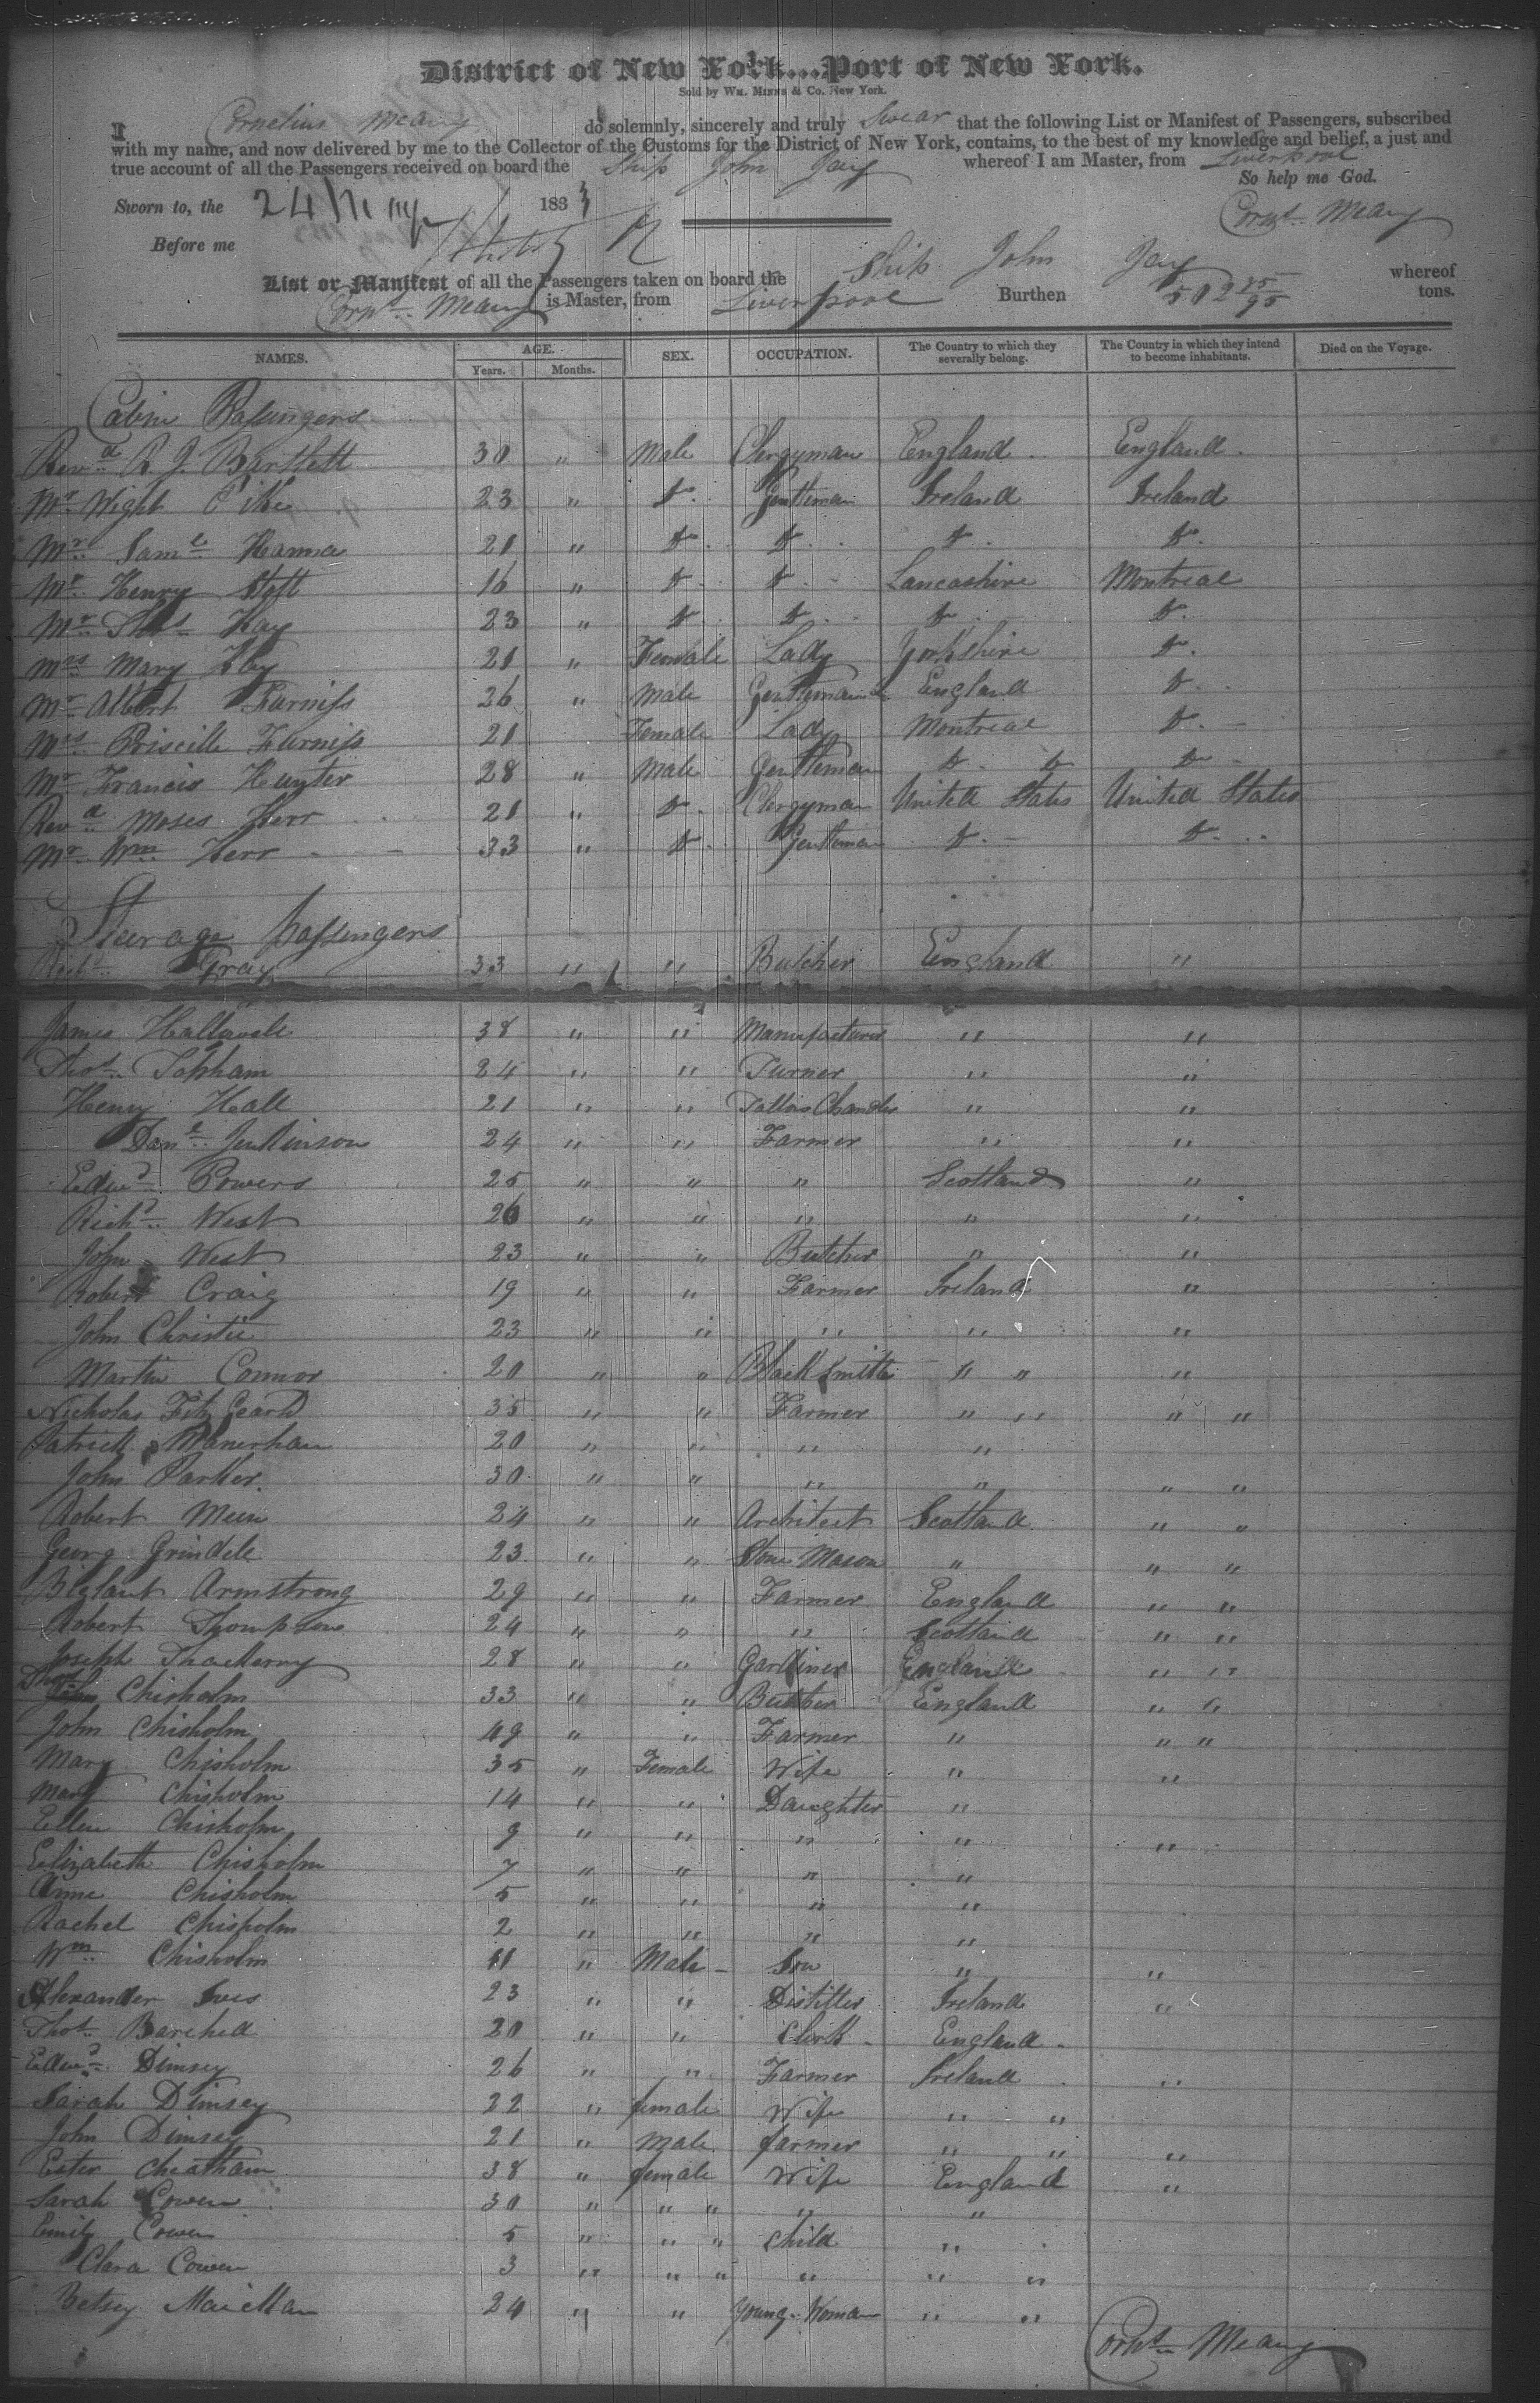 District of New York...Port of New York.
Sold by Wm. Minns & Co. New York.
I Cornelius Meany do solemnly, sincerely and truly Swear that the following List or Manifest of Passengers, subscribed
with my name, and now delivered by me to the Collector of the Customs for the District of New York, contains, to the best of my knowledge and belief, a just and
true account of all the Passengers received on board the Ship John Jay whereof I am Master, from Liverpool
So help me God.
Sworn to, the 24th 1833
Corns. Meany
Before me
List or Manifest of all the Passengers taken on board the Ship John Jay whereof
Corns. Meany is Master, from Liverpool Burthen 502 25/95 tons.
NAMES. AGE. SEX. OCCUPATION. The Country to which they severally belong. The Country in which they intend to become inhabitants. Died on the Voyage.
Years. Months.
Cabin Passengers
Revd. R J. Bartlett 30 " Male Clergyman England England
Mr. Wight Pike 23 " do. Gentleman Ireland Ireland
Mr. Saml. Hanna 21 " do. do. do. do.
Mr. Henry Stott 16 " do. do. Lancashire Montreal
Mr. Thos. Kay 23 " do. do. do. do.
Mrs Mary Kay 21 " Female Lady Yorkshire do.
Mr. Albert Furniss 26 " Male Gentleman England do.
Mrs. Priscilla Furniss 21 Female Lady Montreal do.
Mr. Francis Hunter 28 " Male Gentleman do. do do
Revd. Moses Kerr 21 " do. Clergyman United States United States
Mr. Wm Kerr 33 " do. Gentleman do. do.
Steerage Passengers
Gray 33 " " Butcher England "
James 38 " " Manufacturer " "
Thos. Topham 24 " " Turner " "
Henry Hall 21 " " Tallow Chandler " "
Danl. Jenkinson 24 " " Farmer " "
Edwd. Powers 25 " " " Scotland "
Richd. West 26 " " " " "
John West 23 " " Butcher " "
Robert Craig 19 " " Farmer Ireland "
John Christie 23 " " " " "
Martin Connor 20 " " Black Smith " " "
Nicholas Fitz Gearld 35 " " Farmer " " " "
Patrick 20 " " " "
John Parker. 30 " " " " " "
Robert Mein 24 " " Architect Scotland " "
Georg Grindele 23 " " Stone Mason " " "
Armstrong 29 " " Farmer England " "
Robert Thompson 24 " " " Scotland " "
Joseph Thackeray 28 " " Gardiner England " "
Thos Chisholm 33 " " Butcher England " "
John Chisholm 49 " " Farmer " " "
Mary Chisholm 35 " Female Wife " "
Mary Chisholm 14 " " Daughter "
Ellen Chisholm 9 " " " " "
Elizabeth Chisholm 7 " " " "
Anne Chisholm 5 " " " "
Rachel Chisholm 2 " " " "
Wm. Chisholm 11 " Male Son " "
Alexander Ives 23 " " Distiller Ireland "
Thos. 20 " " Clerk England
Edwd. Dimsey 26 " " Farmer Ireland "
Sarah Dimsey 22 " female Wife " "
John Dimsey 21 " Male farmer " " "
Ester Cheatham 38 " female Wife England "
Sarah Cowen 30 " " " " "
Emily Cowen 5 " " " Child "
Clara Cowen 3 " " " " " "
Betsy 24 " " Young Woman " "
Corns. Meany